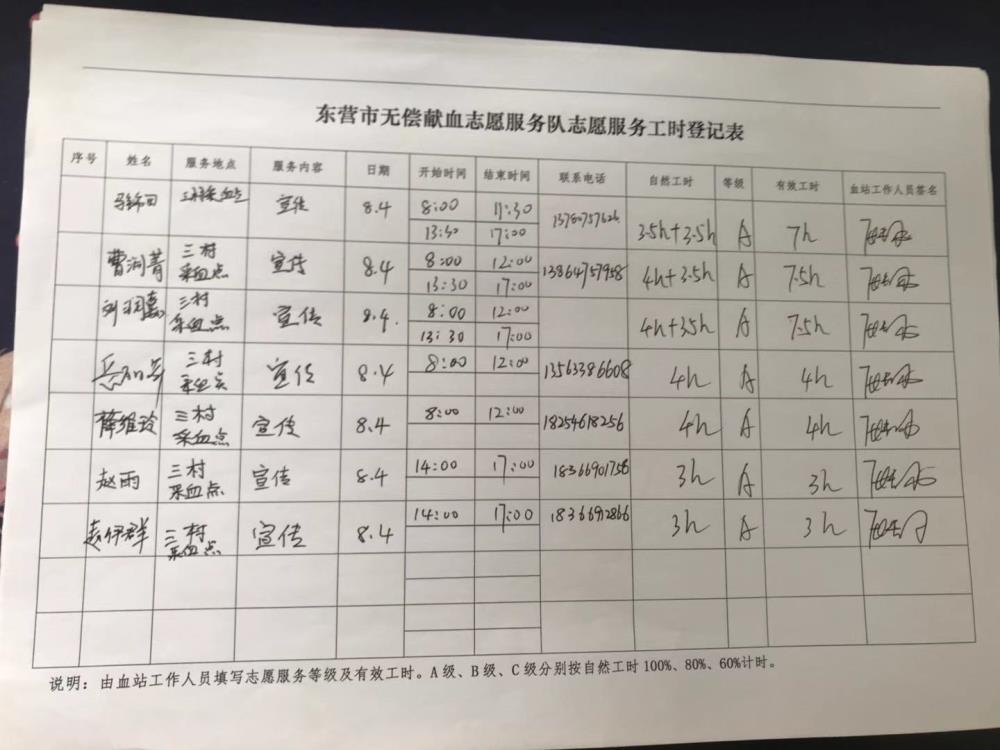 东营市无偿献血志愿服务队志愿服务工时登记表
序号 姓名 服务地点 服务内容 日期 开始时间 结束时间 联系电话 自然工时 等级 有效工时 血站工作人员签名
宣传 8.4 8:00 11:30 3.5h+3.5h A 7h
13:30 17:00
曹润菁 三村采血点 宣传 8.4 8:00 12:00 13864757958 4h+3.5h A 7.5h
13:30 17:00
刘润嘉 三村采血点 宣传 8.4. 8:00 12:00 4h+3.5h A 7.5h
13:30 17:00
三村采血点 宣传 8.4 8:00 12:00 13563386608 4h A 4h
薛维玲 三村采血点 宣传 8.4 8:00 12:00 18254618256 4h A 4h
赵雨 三村采血点 宣传 8.4 14:00 17:00 18366901756 3h A 3h
三村采血点 宣传 8.4 14:00 17:00 18366912866 3h A 3h
说明：由血站工作人员填写志愿服务等级及有效工时。A级、B级、C级分别按自然工时100%、80%、60%计时。